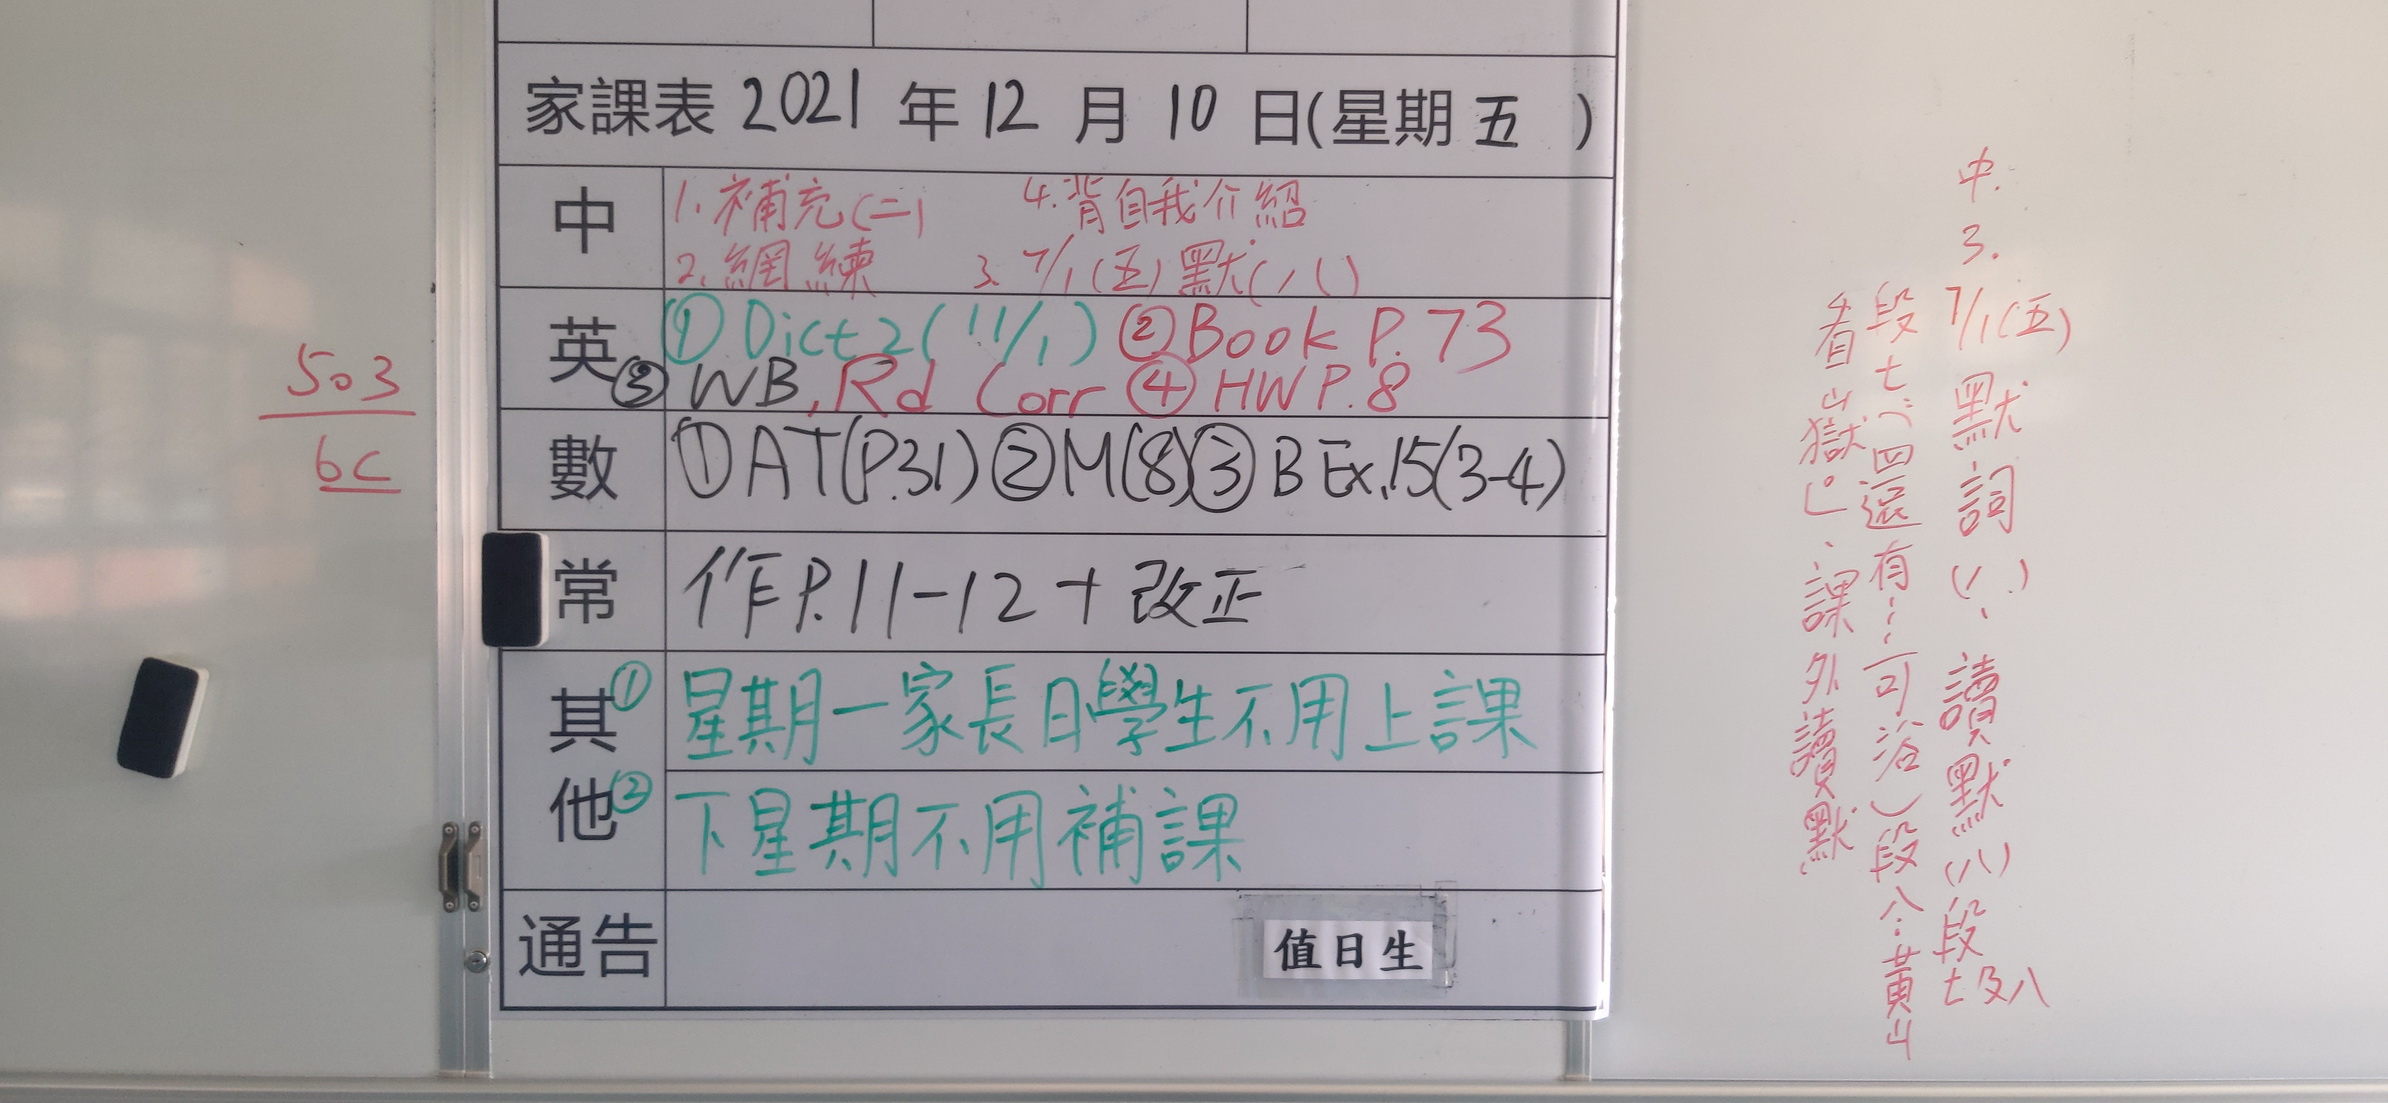 家課表 2021 年 12 月 10 日(星期 五 )
中
1. 補充(二) 4. 背自我介紹
2. 網練 3. 7/1(五)默(八)
英
① Dict 2 (11/1) ② Book P. 73
③ WB, Rd Corr ④ HW P. 8
數
① AT(P.31) ② M(8) ③ B Ex.15(3-4)
常
作P.11-12 + 改正
其他
① 星期一家長日學生不用上課
② 下星期不用補課
通告
值日生
503
6C
中.
3.
7/1(五)默詞(八)、讀默(八)段七及八
段七(「四還有……可浴)段八(黃山
看山嶽」。)、課外讀默